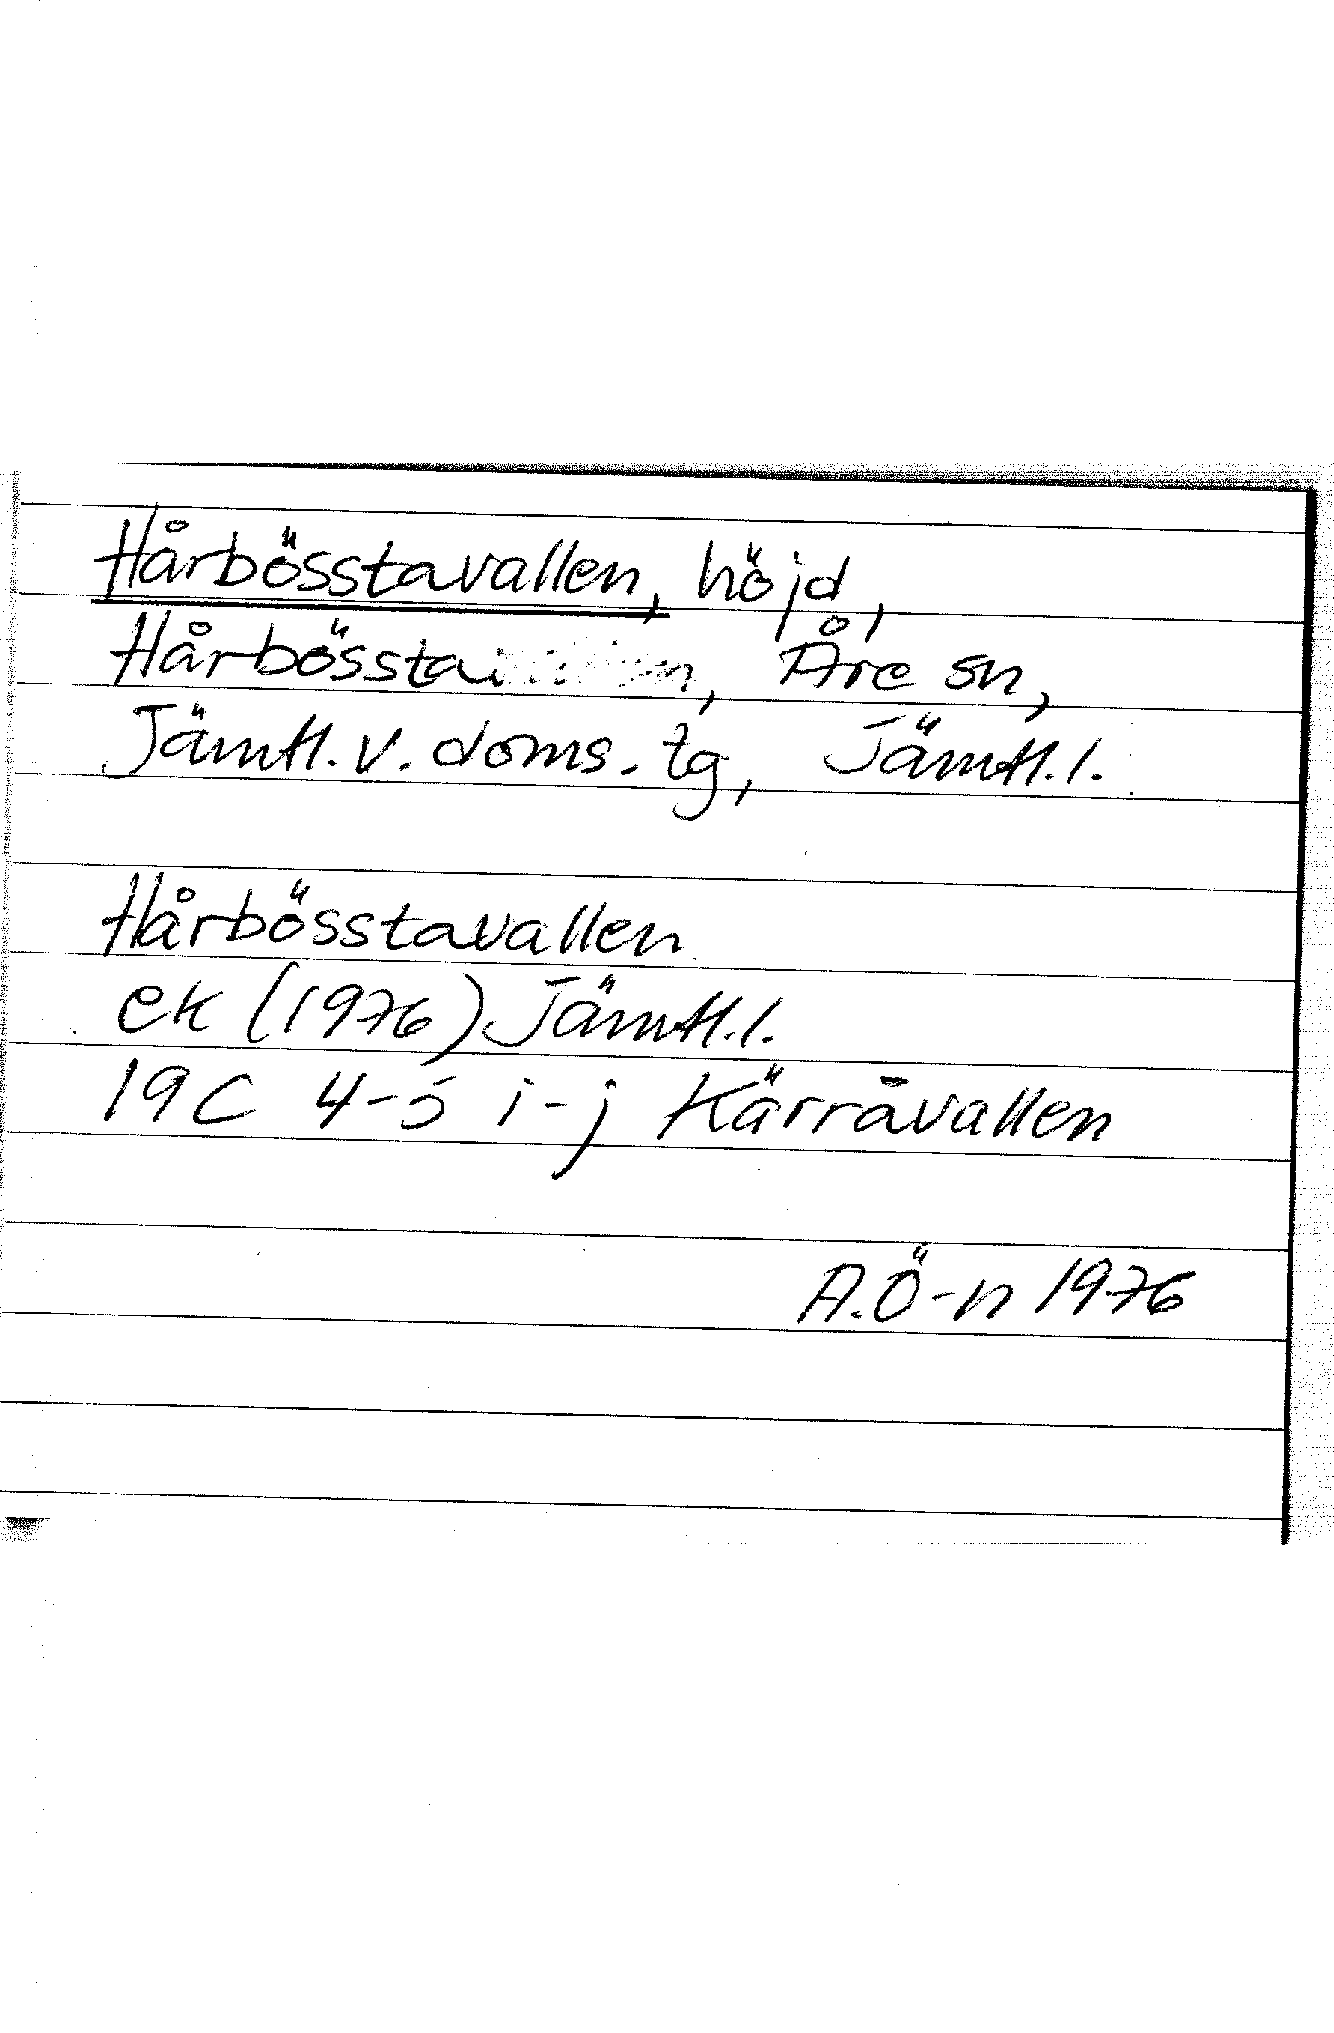 Hårbösstavallen, höjd,
Åre sn,
Jämtl. v. doms. tg, Jämtl. l.
Hårbösstavallen
ek (1976) Jämtl. l.
19 C 4-5 i-j Kärråvallen
A.Ö-n 1976